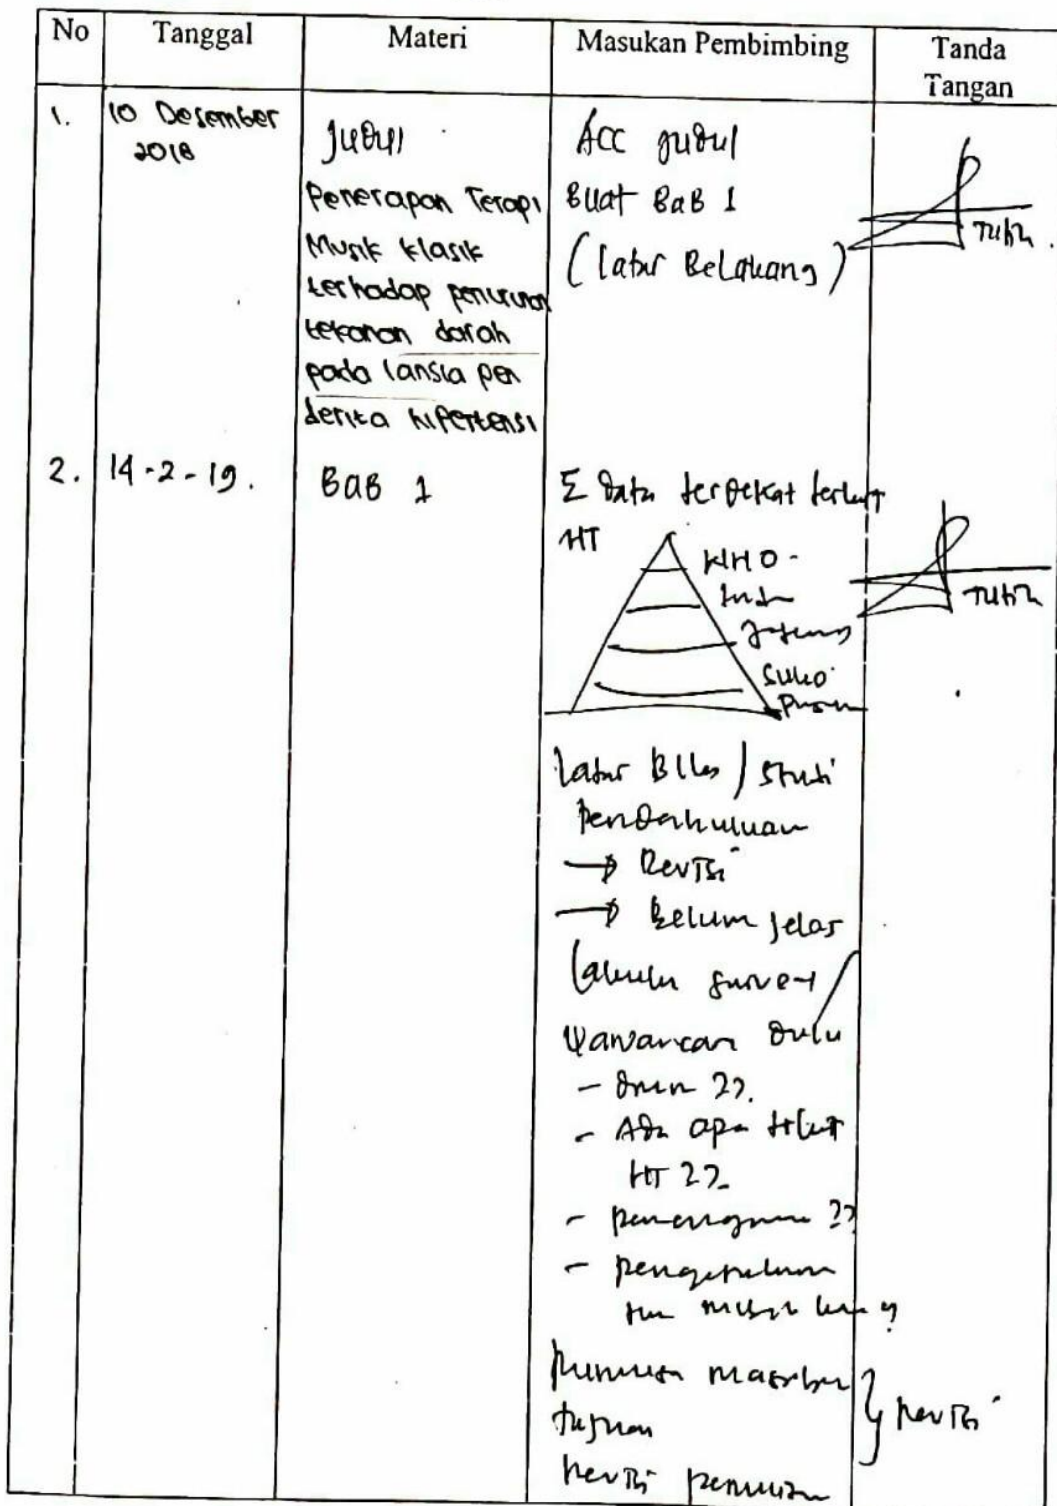 No Tanggal Materi Masukan Pembimbing Tanda Tangan
1. 10 Desember 2018
Judul
Penerapan Terapi
Musik klasik
terhadap penurunan
tekanan darah
pada lansia pen
derita hipertensi
ACC judul
Buat BaB 1
(latar Belakang)
2. 14-2-19.
BaB 1
Σ data terdekat terkait
HT
WHO
Indo
Jateng
Suko
latar Blkg / studi
pendahuluan
→ Revisi
→ Belum jelas
Lakukan survey /
wawancara dulu
- dmn ??
- Ada apa terkait
HT ??
- penanganan ??
- pengetahuan
Rumusan masalah
tujuan
} Revisi
Revisi penulisan